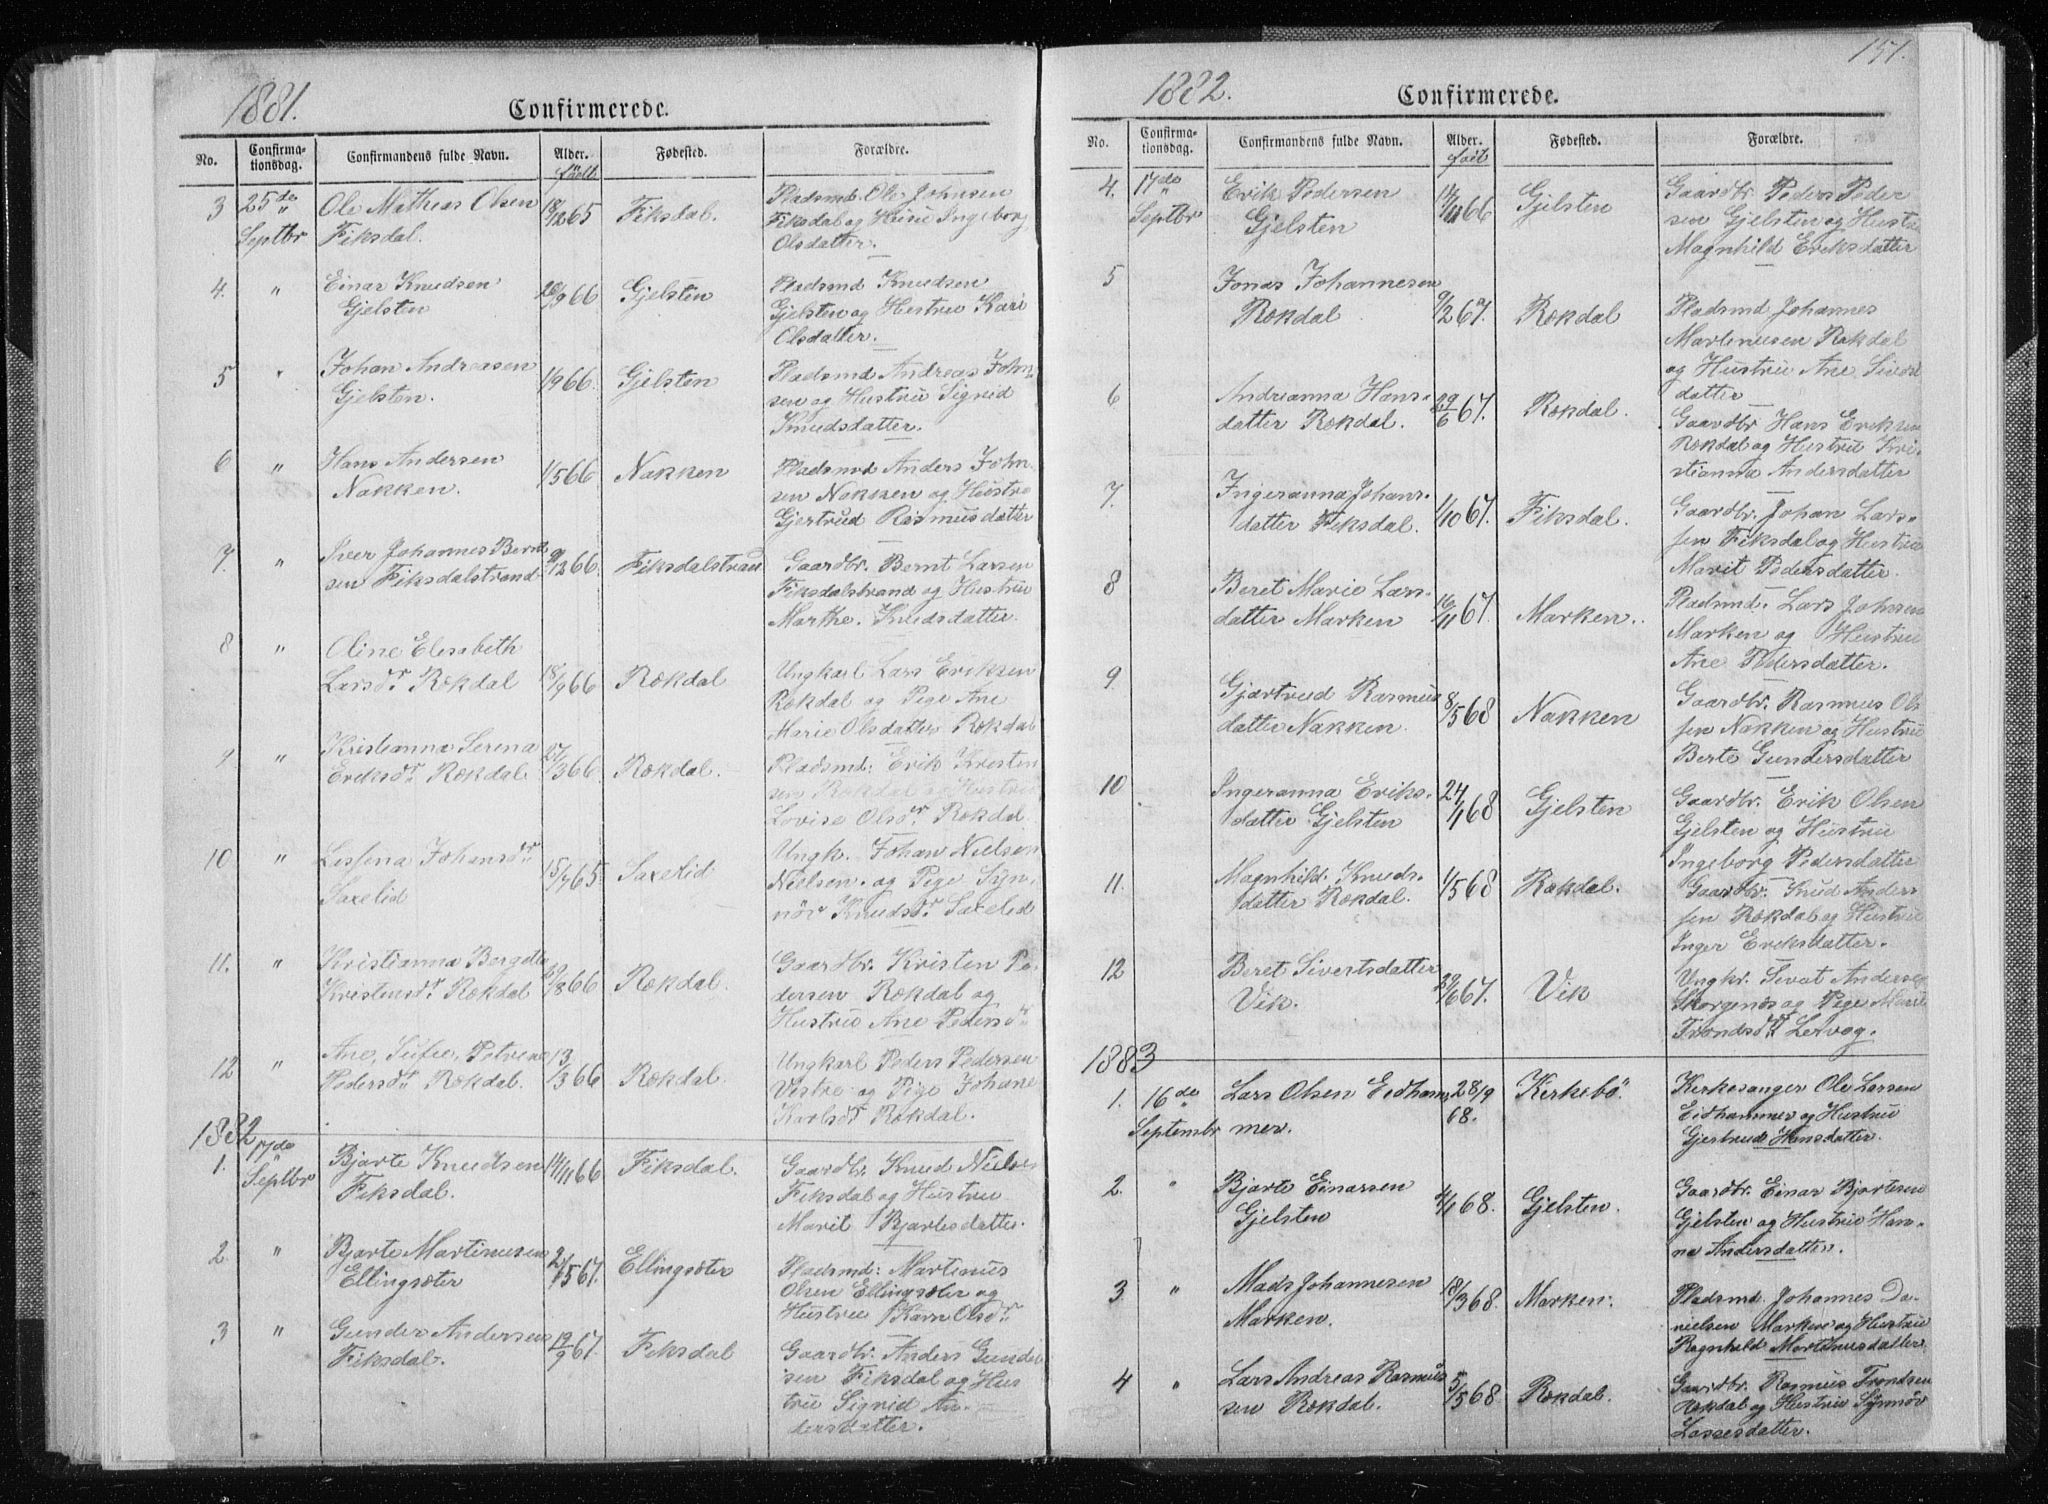 1881.
Confirmerede.
No.
Confirma-
tionsdag.
Confirmandens fulde Navn.
Alder.
født
Fødested.
Forældre.
3
25de
Septbr
Ole Mathias Olsen
Fiksdal.
18/12 65
Fiksdal.
Pladsmd. Ole Johnsen
Fiksdal og Husu Ingeborg
Olsdatter.
4.
"
Einar Knudsen
Gjelsten
/9 66
Gjelsten
Pladsmd Knudsen
Gjelsten og Hustru Kari
Olsdatter.
5
"
Johan Andreasen
Gjelsten.
1/9 66.
Gjelsten
Pladsmd Andreas John-
sen og Hustru Sigrid
Knudsdatter.
6
"
Hans Andersen
Nakken.
1/5 66
Nakken
Pladsmd Anders John-
sen Nakken og Hustru
Gjertrud Rasmusdatter
7.
"
Iver Johannes Bernt
sen Fiksdalstrand
/12 66.
Fiksdalstrand
Gaardbr. Bernt Larsen
Fiksdalstrand og Hustru
Marthe. Knudsdatter.
8
"
Oline Elesabeth
Larsdr. Rokdal
18/9 66
Rokdal
Ungkarl Lars Eriksen
Rokdal og Pige Ane
Marie Olsdatter Rokdal
9
"
Kristianna Serena
Eriksdr. Rokdal.
27/3 66
Rokdal.
Pladsmd: Erik Kristen
sen Rokdal og Hustru
Lovise Olsdr. Rokdal
10
"
Lessena Johansdr.
Saxelid
15/7 65
Saxelid
Ungk. Johan Nielsen
Nielsen. og Pige Syn-
növ Knudsdr. Saxelid
11.
"
Kristianna Bergdta
Kristensdr. Rokdal
/8 66
Rokdal.
Gaardbr. Kristen Pe-
dersen Rokdal og
Hustru Ane Pedersdr.
12
"
Ane, Sufie, Petrine
Pedersdr. Rokdal.
13/3 66
Rokdal.
Ungkarl Peders Pedersen
Vestre og Pige Johane
Karlsdr. Rokdal.
1882
1.
17de
Septbr
Bjarte Knudsen
Fiksdal.
14/11 66
Fiksdal.
Gaardbr. Knud Nielse
Fiksdal og Hustru
Marit Bjartesdatter.
2.
"
Bjarte Martinusen
Ellingsæter
2/5 67.
Ellingsæter
Pladsmd: Martinus
Olsen Ellingsæter og
Hustru Karn Olsdr.
3
"
Gunder Andersen
Fiksdal.
12/9 67.
Fiksdal
Gaardbr. Anders Gunder
sen Fiksdal og Hus
tru Sigrid An-
dersdatter.
151.
1882.
Confirmerede.
No.
Confirma-
tionsdag.
Confirmandens fulde Navn.
Alder.
født
Fødested.
Forældre.
4.
17de
Septbr
Erik Pedersen
Gjelsten
14/11 66
Gjelsten
Gaardbr Peders Peder
sen Gjelsten og Hustru
Magnhild Eriksdatter
5
Jonas Johannesen
Rokdal
9/2 67.
Rokdal
Pladsmd Johannes
Martinusen Rokdal
og Hustru Ane Siverd
datter
6
Andreanna Hans-
datter Rokdal.
29/6 67.
Rokdal.
Gaardbr Hans Eriksen
Rokdal og Hustru Kri-
stianna Andersdatter
7.
Ingeranna Johans-
datter Fiksdal.
1/10 67.
Fiksdal.
Gaardbr. Johan Lars-
sen Fiksdal og Hustru
Marit Pedersdatter.
8
Beret Marie Lars-
datter Marken
16/11 67.
Marken.
Pladsmd. Lars Johnsen
Marken og Hustru
Ane Pedersdatter.
9
Gjartrud Rasmus
datter Nakken.
8/5 68
Nakken
Gaardbr. Rasmus Ol-
sen Nakken og Hustru
Berte Gundersdatter
10
Ingeranna Eriks-
datter Gjelsten
24/1 68
Gjelsten
Gaardbr. Erik Olsen
Gjelsten og Hustru
Ingeborg Pedersdatter
11.
Magnhild. Knuds-
datter Rokdal.
1/5 68
Rokdal.
Gaardbr. Knud Anders-
sen Rokdal og Hustru
Inger Eriksdatter.
12
Beret Sivertsdatter
Vik.
/6 67.
Vik
Ungkr. Sevat Andersen
Skorgenes og Pige Marie
Trondsdr. Lervag.
1883
1.
16de
Septembr
Lars Olsen Eidham-
mer.
28/9
68.
Kirkebö.
Kirkesanger Ole Larsen
Eidhammer og Hustru
Gjertrud Hansdatter.
2.
"
Bjarte Einarsen
Gjelsten
4/1 68.
Gjelsten.
Gaardbr. Einar Bjartesen
Gjelsten og Hustru Han-
na Andersdatter.
3
"
Mads Johannesen
Marken.
18/3 68.
Marken.
Pladsmd. Johannes Da-
nielsen Marken og Hustru
Ragnhild Martinusdatter
4
"
Lars Andreas Rasmus
sen Rokdal.
5/5 68.
Rokdal.
Gaardbr. Rasmus Trondsen
Rokdal og Hustru Synnöv
Lassesdatter.